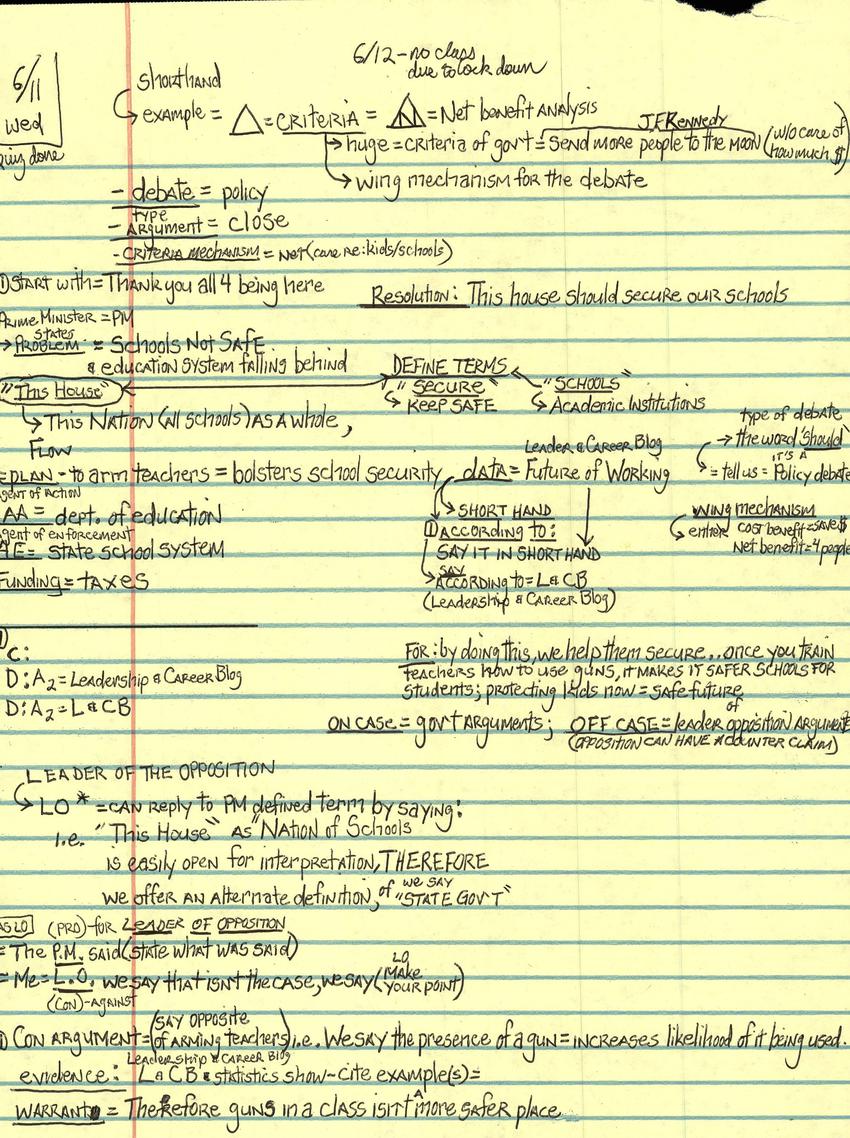 6/12-no class
due to lock down
6/11
wed
shorthand
example = △ = CRITERIA = = Net benefit ANALYSIS
J.F.Kennedy
→ huge = criteria of gov't = send more people to the MOON (w/o care of how much $)
→ wing mechanism for the debate
- debate = policy
type
- ARgument = close
- CRITERIA MECHANISM = Net (care re: kids/schools)
① START with = Thank you all 4 being here
Resolution: This house should secure our schools
Prime Minister = PM
States
→ PROBLEM = Schools Not SAFE
& education system falling behind
DEFINE TERMS
"This House"
"SECURE"
"SCHOOLS"
→ KEEP SAFE
→ Academic Institutions
→ This Nation (All schools) AS A whole,
type of debate
→ the word "should"
IT'S A
= tell us = Policy debate
Flow
Leader & Career Blog
PLAN - to arm teachers = bolsters school security
data = Future of Working
Agent of Action
AA = dept. of education
→ SHORT HAND
wing mechanism
→ either cost benefit = save $
Net benefit = 4 people
Agent of enforcement
AE = State school system
① ACCORDING TO:
SAY IT IN SHORT HAND
SAY
→ ACCORDING to = L & CB
(Leadership & Career Blog)
Funding = taxes
C:
D: A2 = Leadership & Career Blog
D: A2 = L & CB
FOR: by doing this, we help them secure.. once you TRAIN
teachers how to use guns, it makes it SAFER SCHOOLS FOR
students; protecting kids now = safe future
ON CASE = gov't ARguments; OFF CASE = leader of opposition ARGUMENTS
(OPPOSITION CAN HAVE A COUNTER CLAIM)
LEADER OF THE OPPOSITION
→ LO * = CAN Reply to PM defined term by saying:
i.e. "This House" AS "NATION of Schools
is easily open for interpretation, THEREFORE
we say
we offer AN Alternate definition, of "STATE GOV'T"
AS LO (PRO)-for LEADER OF OPPOSITION
= The P.M. said (state what was said)
LO
= Me = L.O. we say that isn't the case, we say (Make YOUR POINT)
(CON)-AGAINST
① CON ARGUMENT = (SAY OPPOSITE of arming teachers) i.e. We say the presence of a gun = increases likelihood of it being used.
Leadership & Career Blog
evidence: L & CB & statistics show - cite example(s) =
WARRANT = Therefore guns in a class isn't A more safer place